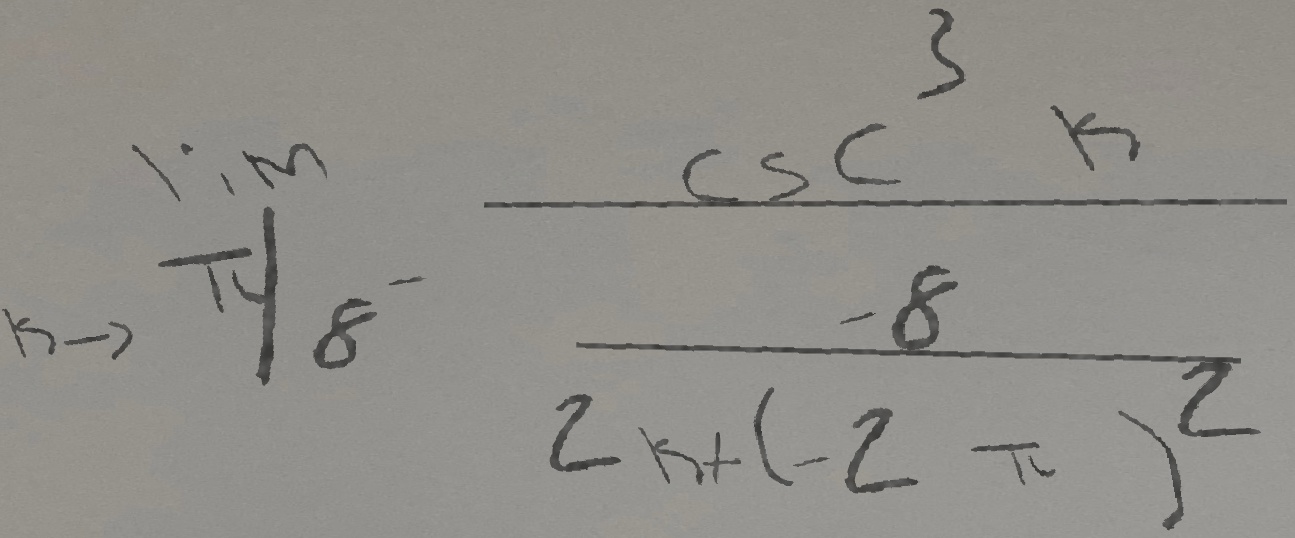 \lim_{k \to \pi/8^-} \frac{\csc^3 k}{\frac{-8}{2k+(-2\pi)^2}}